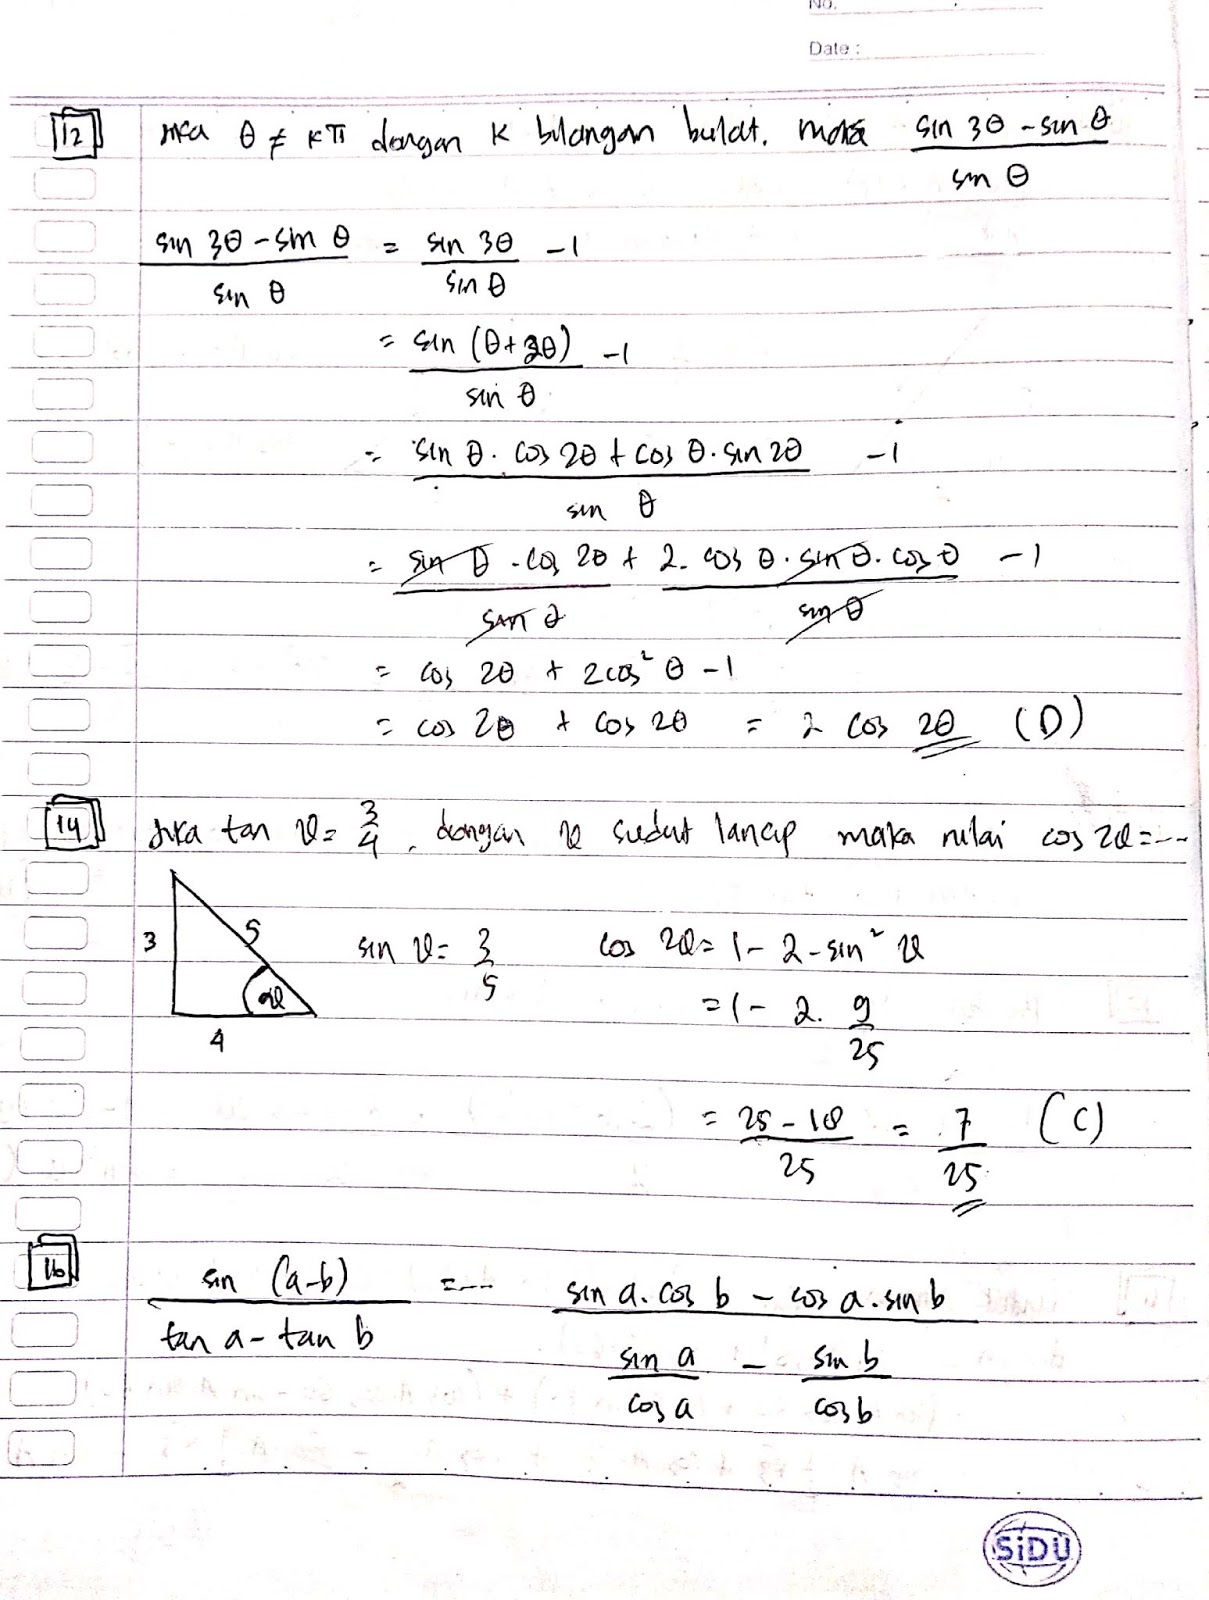 No.
Date :
12 Jika θ ≠ kπ dengan k bilangan bulat. maka (sin 3θ - sin θ)/(sin θ)
(sin 3θ - sin θ)/(sin θ) = (sin 3θ)/(sin θ) - 1
= (sin (θ + 2θ))/(sin θ) - 1
= (sin θ . cos 2θ + cos θ . sin 2θ)/(sin θ) - 1
= (sin θ . cos 2θ)/(sin θ) + (2 . cos θ . sin θ . cos θ)/(sin θ) - 1
= cos 2θ + 2 cos² θ - 1
= cos 2θ + cos 2θ = 2 cos 2θ (D)
14 Jika tan α = 3/4 , dengan α sudut lancip maka nilai cos 2α = ...
3 5 α 4
sin α = 3/5 cos 2α = 1 - 2 - sin² α
= 1 - 2 . 9/25
= (25 - 18)/25 = 7/25 (C)
16 (sin (a-b))/(tan a - tan b) = ... (sin a . cos b - cos a . sin b)/((sin a)/(cos a) - (sin b)/(cos b))
SiDU